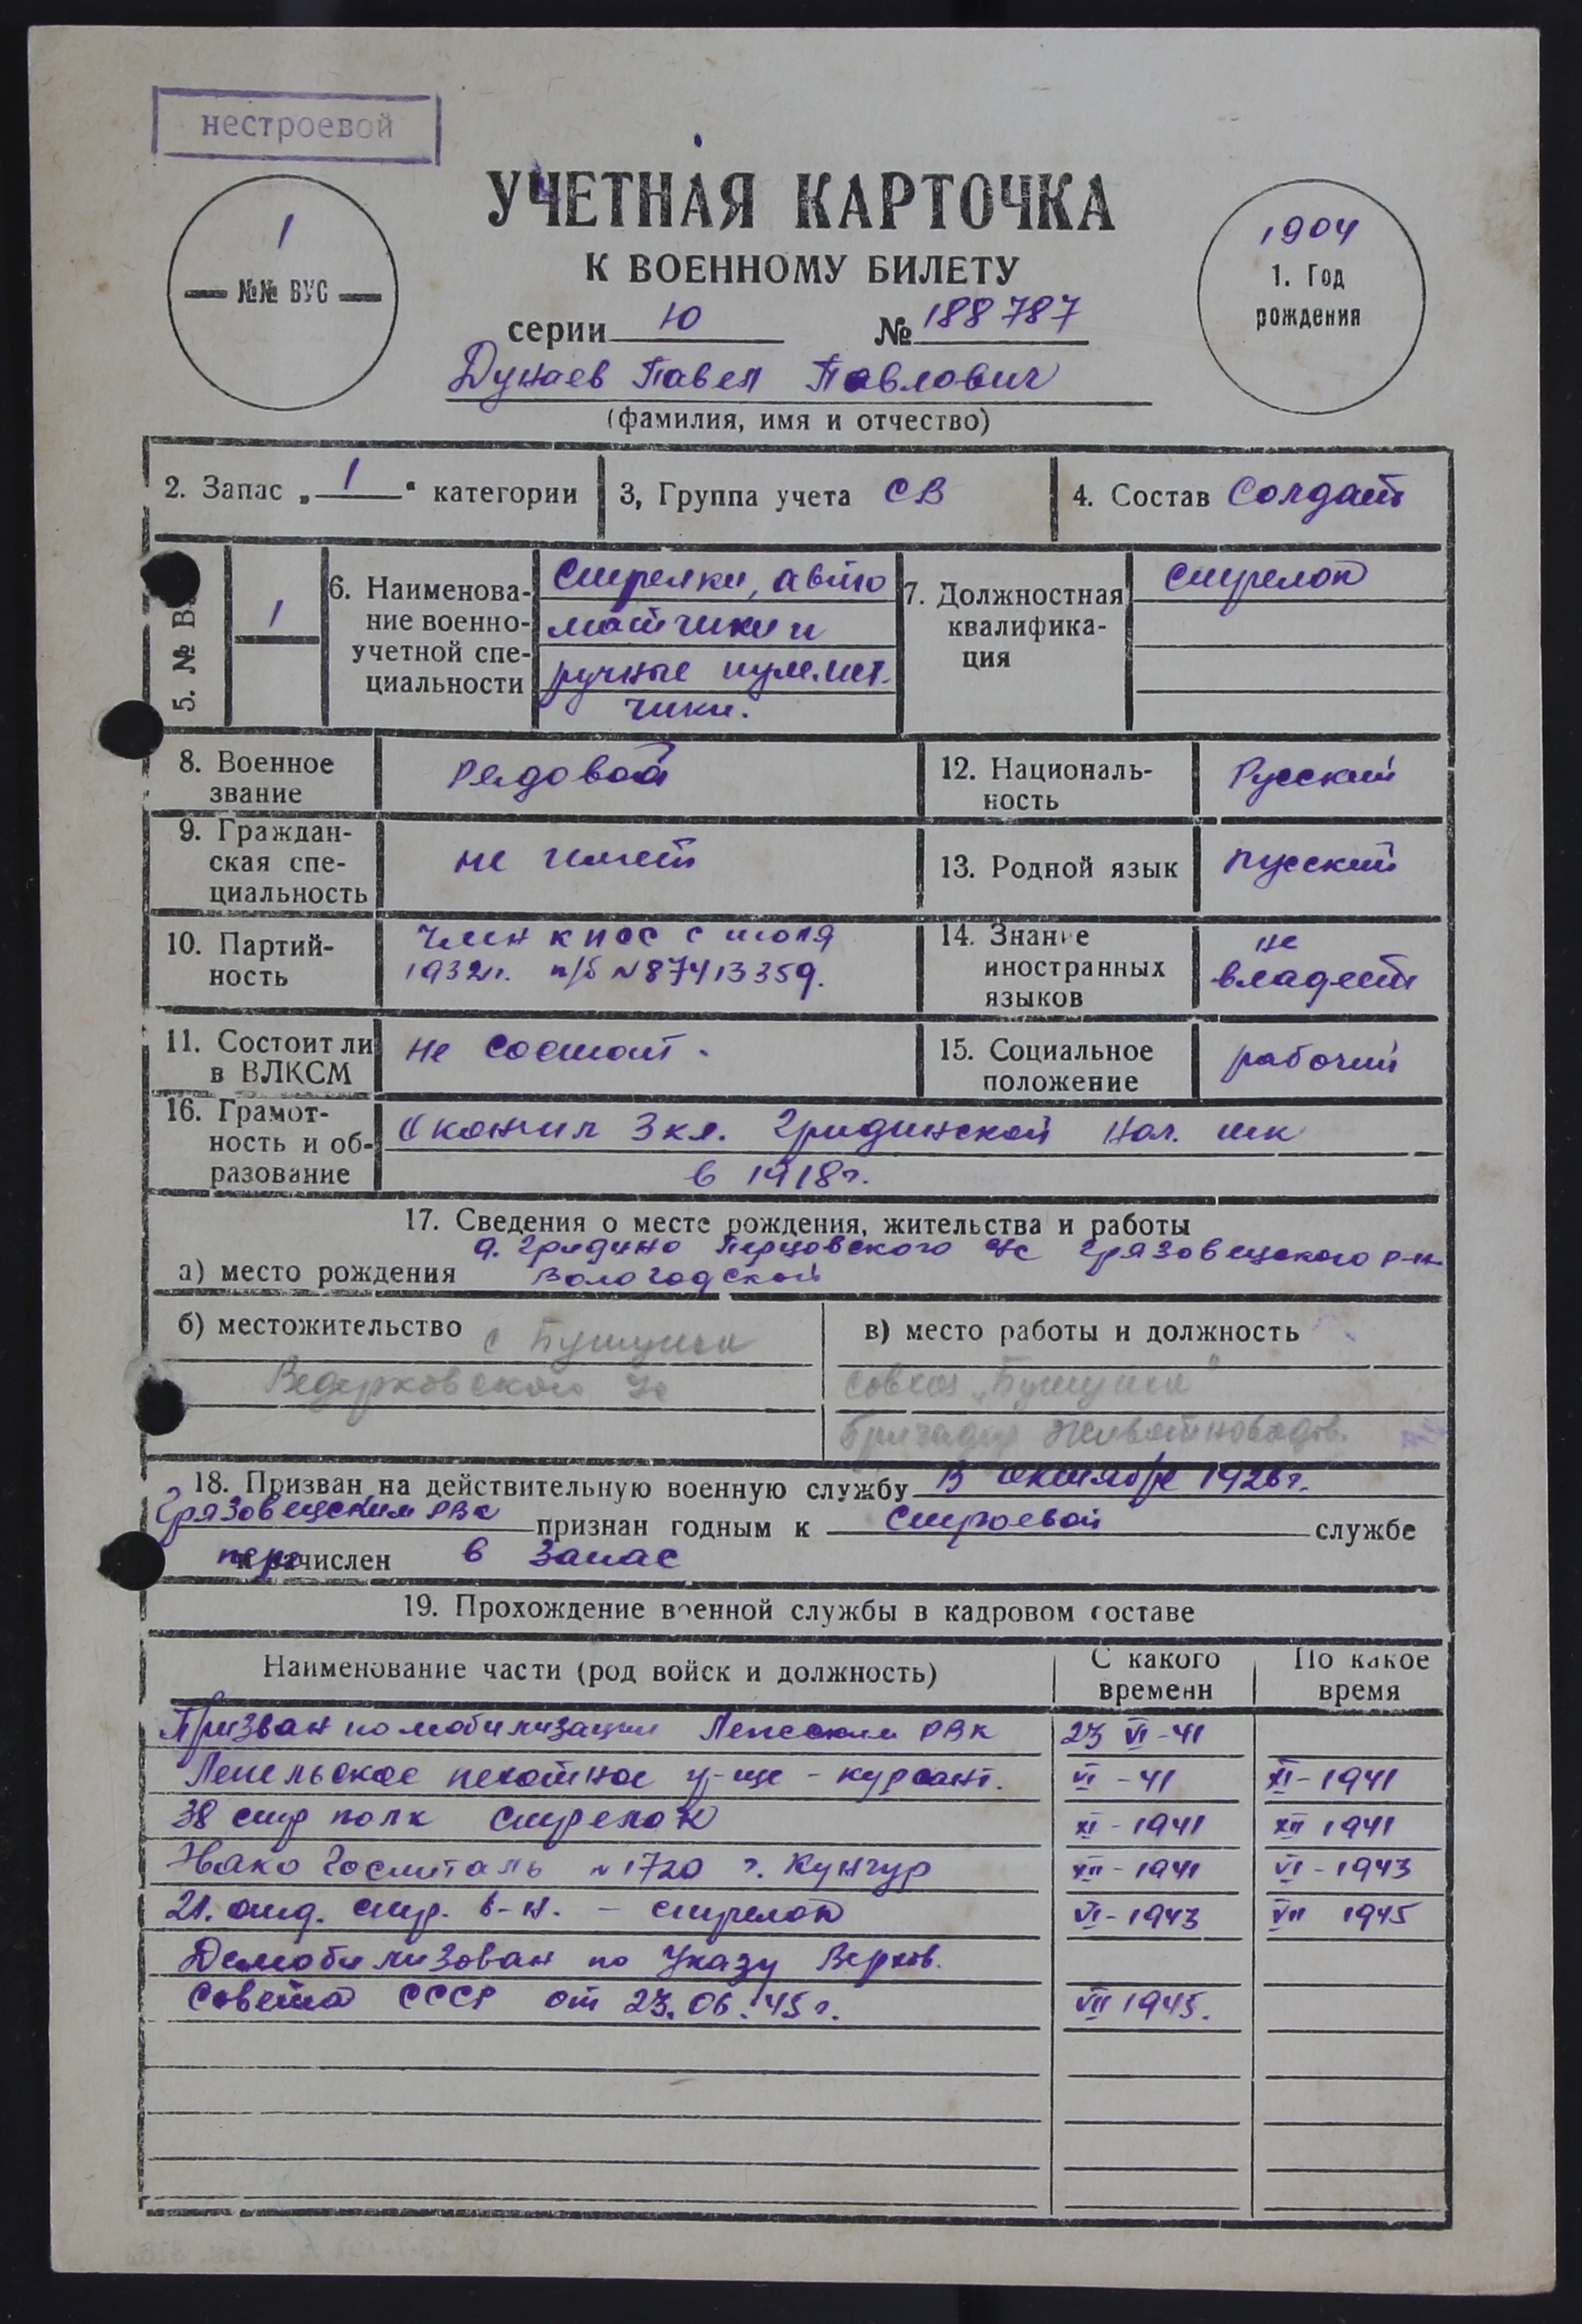 нестроевой
УЧЕТНАЯ КАРТОЧКА
К ВОЕННОМУ БИЛЕТУ
1
№№ ВУС
1904
1. Год
рождения
серии Ю № 188787
Дунаев Павел Павлович
(фамилия, имя и отчество)
2. Запас „ 1 “ категории
3, Группа учета СВ
4. Состав Солдат
5. № В
1
6. Наименова-
ние военно-
учетной спе-
циальности
Стрелки, авто
матчики и
ручные пулемет-
чики.
7. Должностная
квалифика-
ция
стрелок
8. Военное
звание
рядовой
12. Националь-
ность
Русский
9. Граждан-
ская спе-
циальность
не имеет
13. Родной язык
русский
10. Партий-
ность
член КПСС с июля
1932г. п/б №87413359.
14. Знание
иностранных
языков
не
владеет
11. Состоит ли
в ВЛКСМ
не состоит.
15. Социальное
положение
рабочий
16. Грамот-
ность и об-
разование
Окончил 3 кл. Гридинской нач. шк
в 1918г.
17. Сведения о месте рождения, жительства и работы
д. Гридино Перцовского с/с Грязовецкого р-н
а) место рождения Вологодской
б) местожительство с
Ведерковского с/с
в) место работы и должность
совхоз
бригадир животновод.
18. Призван на действительную военную службу В октябре 1926г.
Грязовецким РВК признан годным к строевой службе
перечислен в запас
19. Прохождение военной службы в кадровом составе
Наименование части (род войск и должность)
С какого
времени
По какое
время
Призван по мобилизации РВК 23 VI-41
Лепельское пехотное у-ще - курсант. VI-41 XI-1941
38 стр полк стрелок XI-1941 XII 1941
Эвако Госпиталь №1720 г. Кунгур XII-1941 VI-1943
21. отд. стр. б-н. - стрелок VI-1943 VII 1945
Демобилизован по Указу Верхов.
Совета СССР от 23.06.45г. VII 1945.